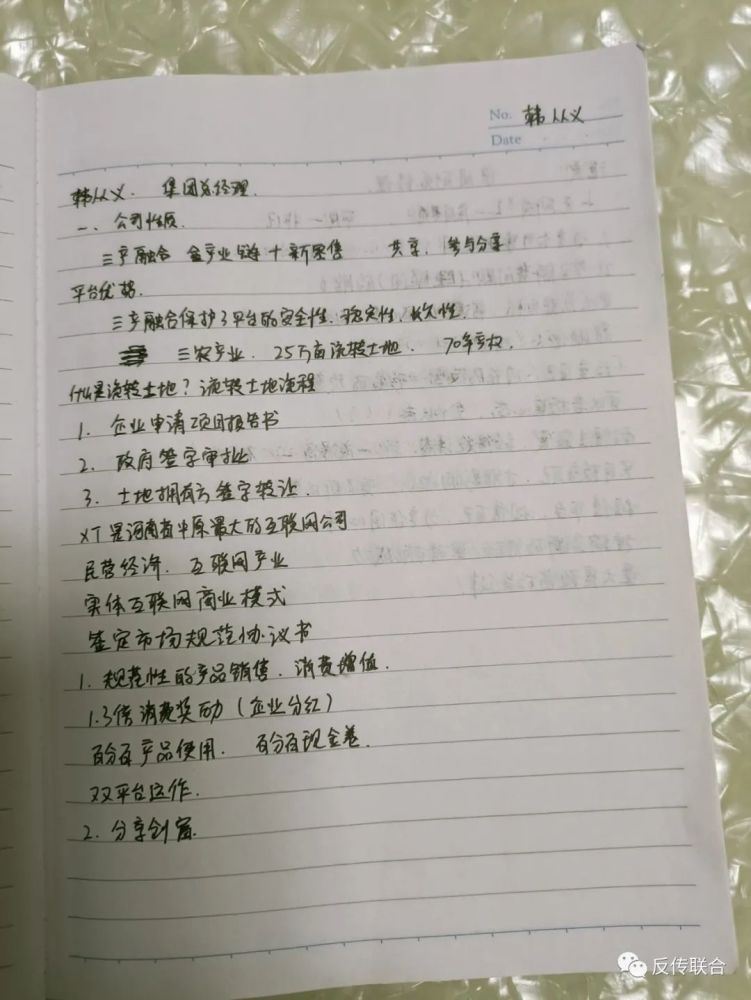 No. 韩从义
Date
韩从义. 集团总经理.
一、公司性质.
三产融合 全产业链十新零售 共享,参与分享
平台优势.
三产融合保护了平台的安全性、稳定性、长久性.
三农产业. 25万亩流转土地. 70年产权.
什么是流转土地?流转土地流程
1. 企业申请项目报告书
2. 政府签字审批
3. 土地拥有方签字转让.
XT是河南省中原最大的互联网公司
民营经济. 互联网产业
实体互联网商业模式
签定市场规范协议书
1. 规范性的产品销售. 消费增值.
1.3倍消费奖励(企业分红)
百分百产品使用. 百分百现金卷.
双平台运作.
2. 分享创富.
反传联合